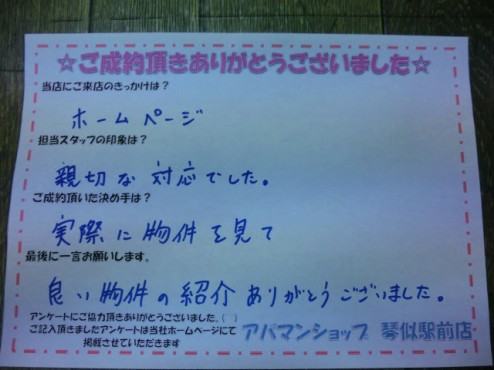 ☆ご成約頂きありがとうございました☆
当店にご来店のきっかけは？
ホームページ
担当スタッフの印象は？
親切な対応でした。
ご成約頂いた決め手は？
実際に物件を見て
最後に一言お願いします。
良い物件の紹介ありがとうございました。
アンケートにご協力頂きありがとうございました。
ご記入頂きましたアンケートは当社ホームページにて
掲載させていただきます
アパマンショップ 琴似駅前店